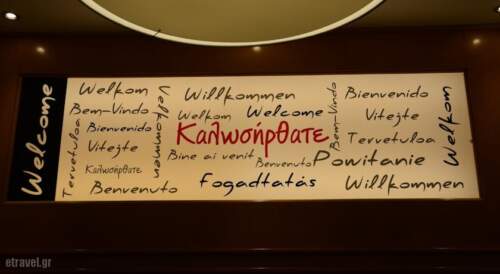 Welcome
Welkom
Bem-Vindo
Tervetuloa
Bienvenido
Vitejte
Καλωσήρθατε
Benvenuto
Willkommen
Willkommen
Welkom
Welcome
Καλωσήρθατε
Bine ai venit
Benvenuto
Powitanie
Fogadtatás
Bem-Vindo
Bienvenido
Vitejte
Tervetuloa
Willkommen
Welkom
etravel.gr